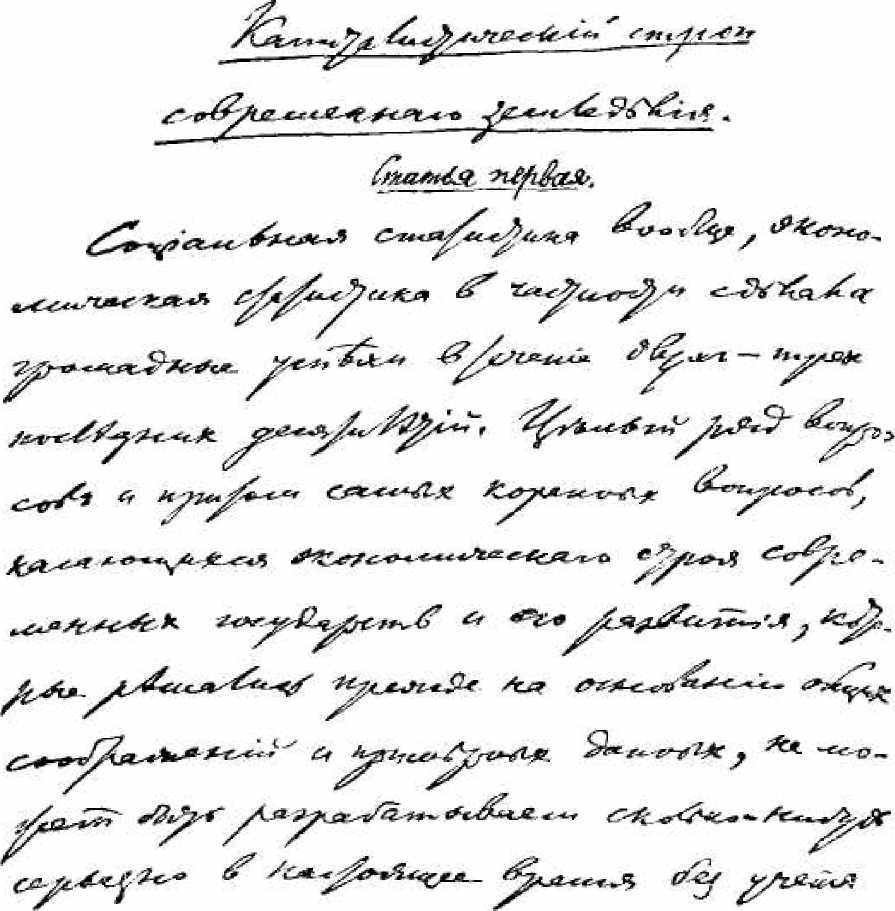 Капиталистическій строй
современнаго земледѣлія.
Статья первая.
Соціальная статистика вообще, эконо-
мическая статистика в частности сдѣлала
громадные успѣхи в теченіе двух–трех
послѣдних десятилѣтій. Цѣлый ряд вопро-
совъ и притом самых коренных вопросов,
касающихся экономическаго строя совре-
менных государств и его развитія, кото-
рые рѣшались прежде на основаніи общих
соображеній и примѣрных данных, не мо-
жет быть разрабатываем сколько-нибудь
серьезно в настоящее время без учета